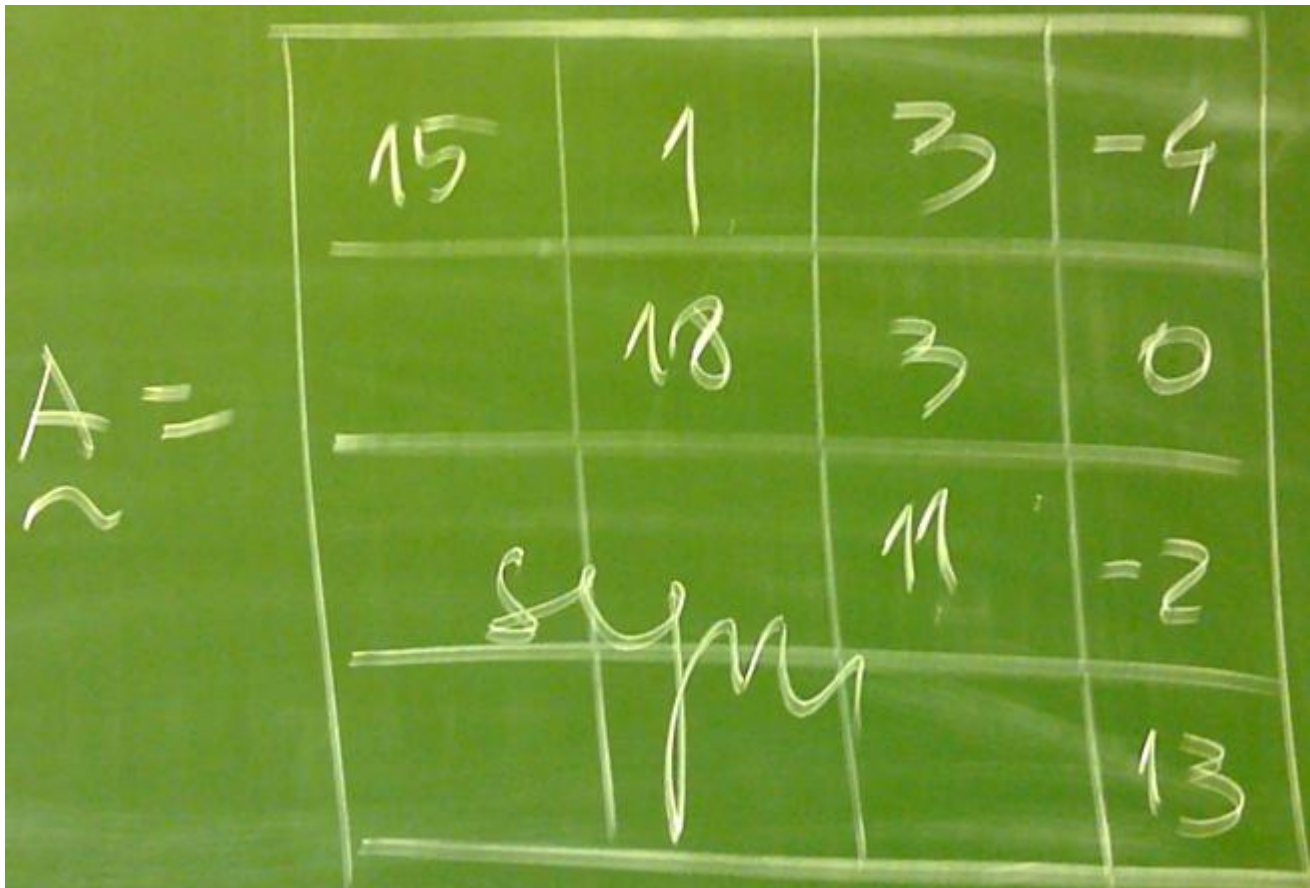 15 1 3 -4
18 3 0
A =
11 -2
sym
13